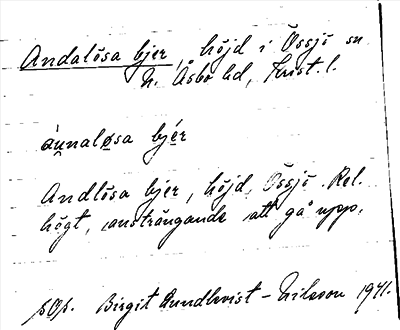 Andalösa bjer, höjd i Össjö sn
N. Åsbo hd, Krist. l.
àu̯nalø̱sa bjé̱r
Andlösa bjer, höjd, Össjö. Rel.
högt, ansträngande att gå upp.
sOp. Birgit Lundkvist-Nilsson 1941.